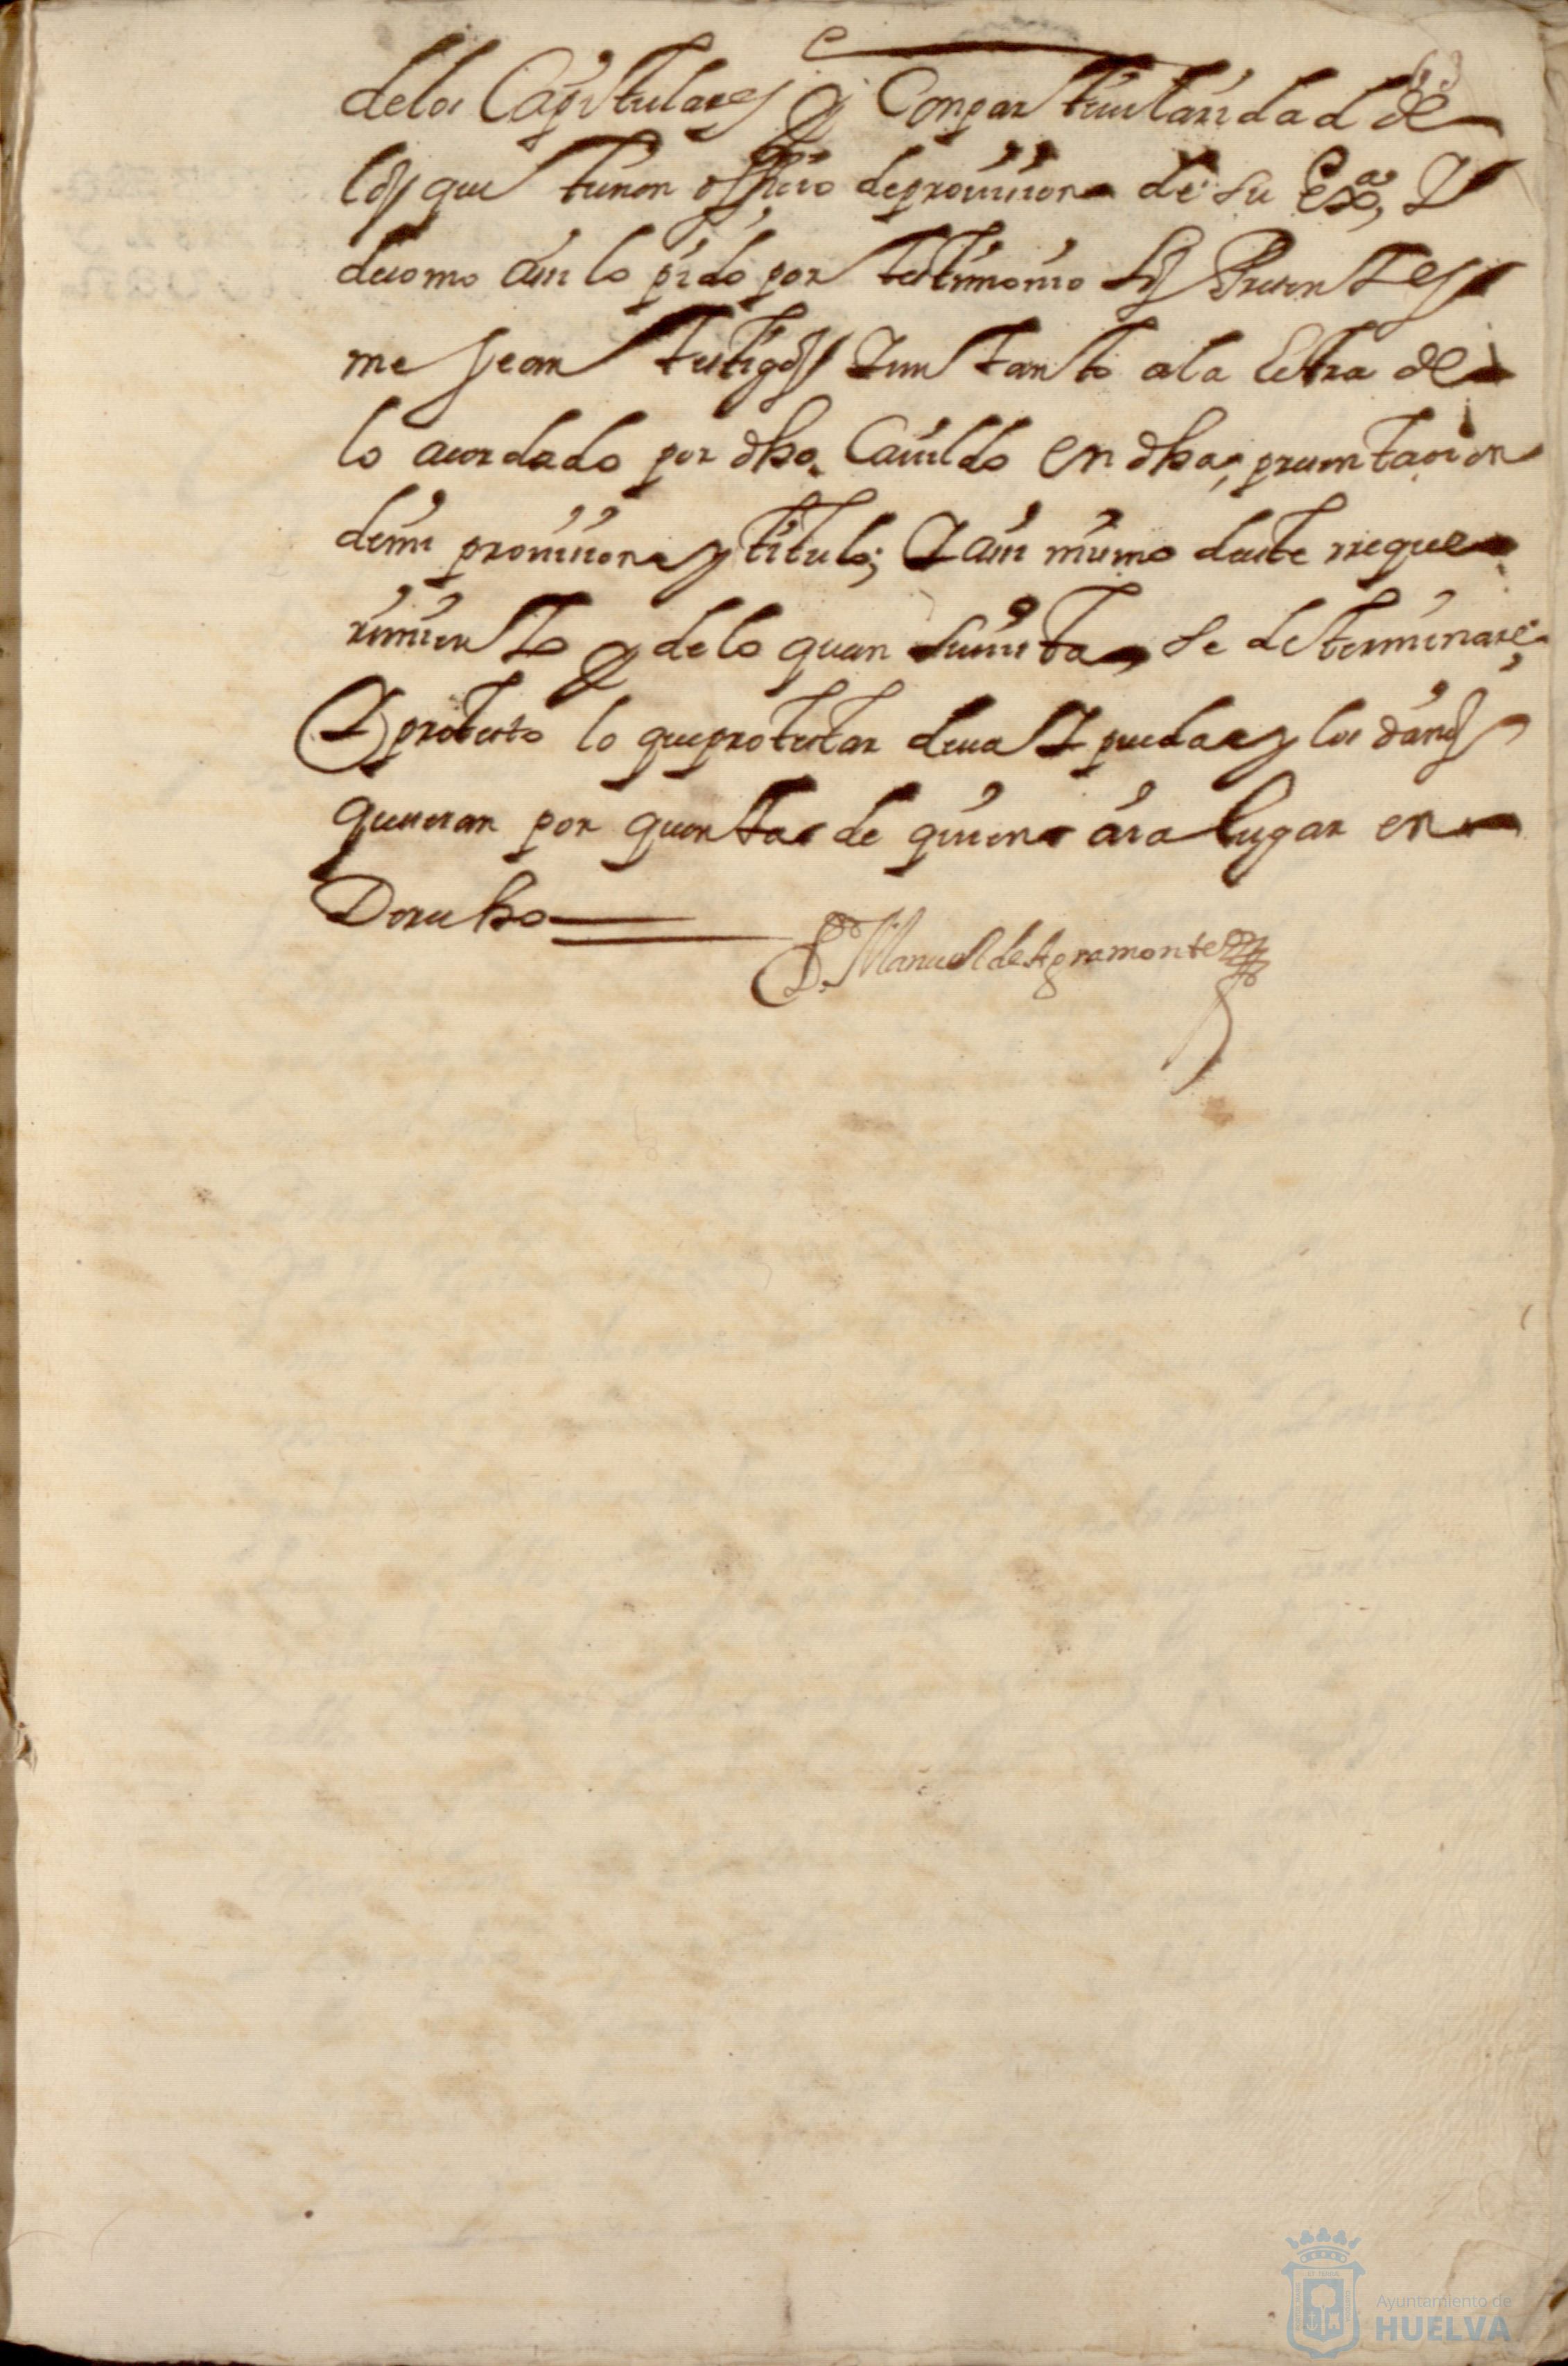 delos Capitulares y Conparticularidad de
los que tienen offiçio deprouission de su Exª, Y
decomo assi lo pido por testimonio Los Presentes
me sean testigos Yun tanto ala Letra de
lo acordado por dho. Cauildo en dha, presentacion
demi prouission y titulo; Y assi mismo deeste rreque
rimiento y delo quen suuista, se determinare,
Y protesto lo queprotestar deua Y pueda y los daños
que por quenta de quien aia lugar en
Derecho
D. Manuel de Agramonte
Ayuntamiento de
HUELVA